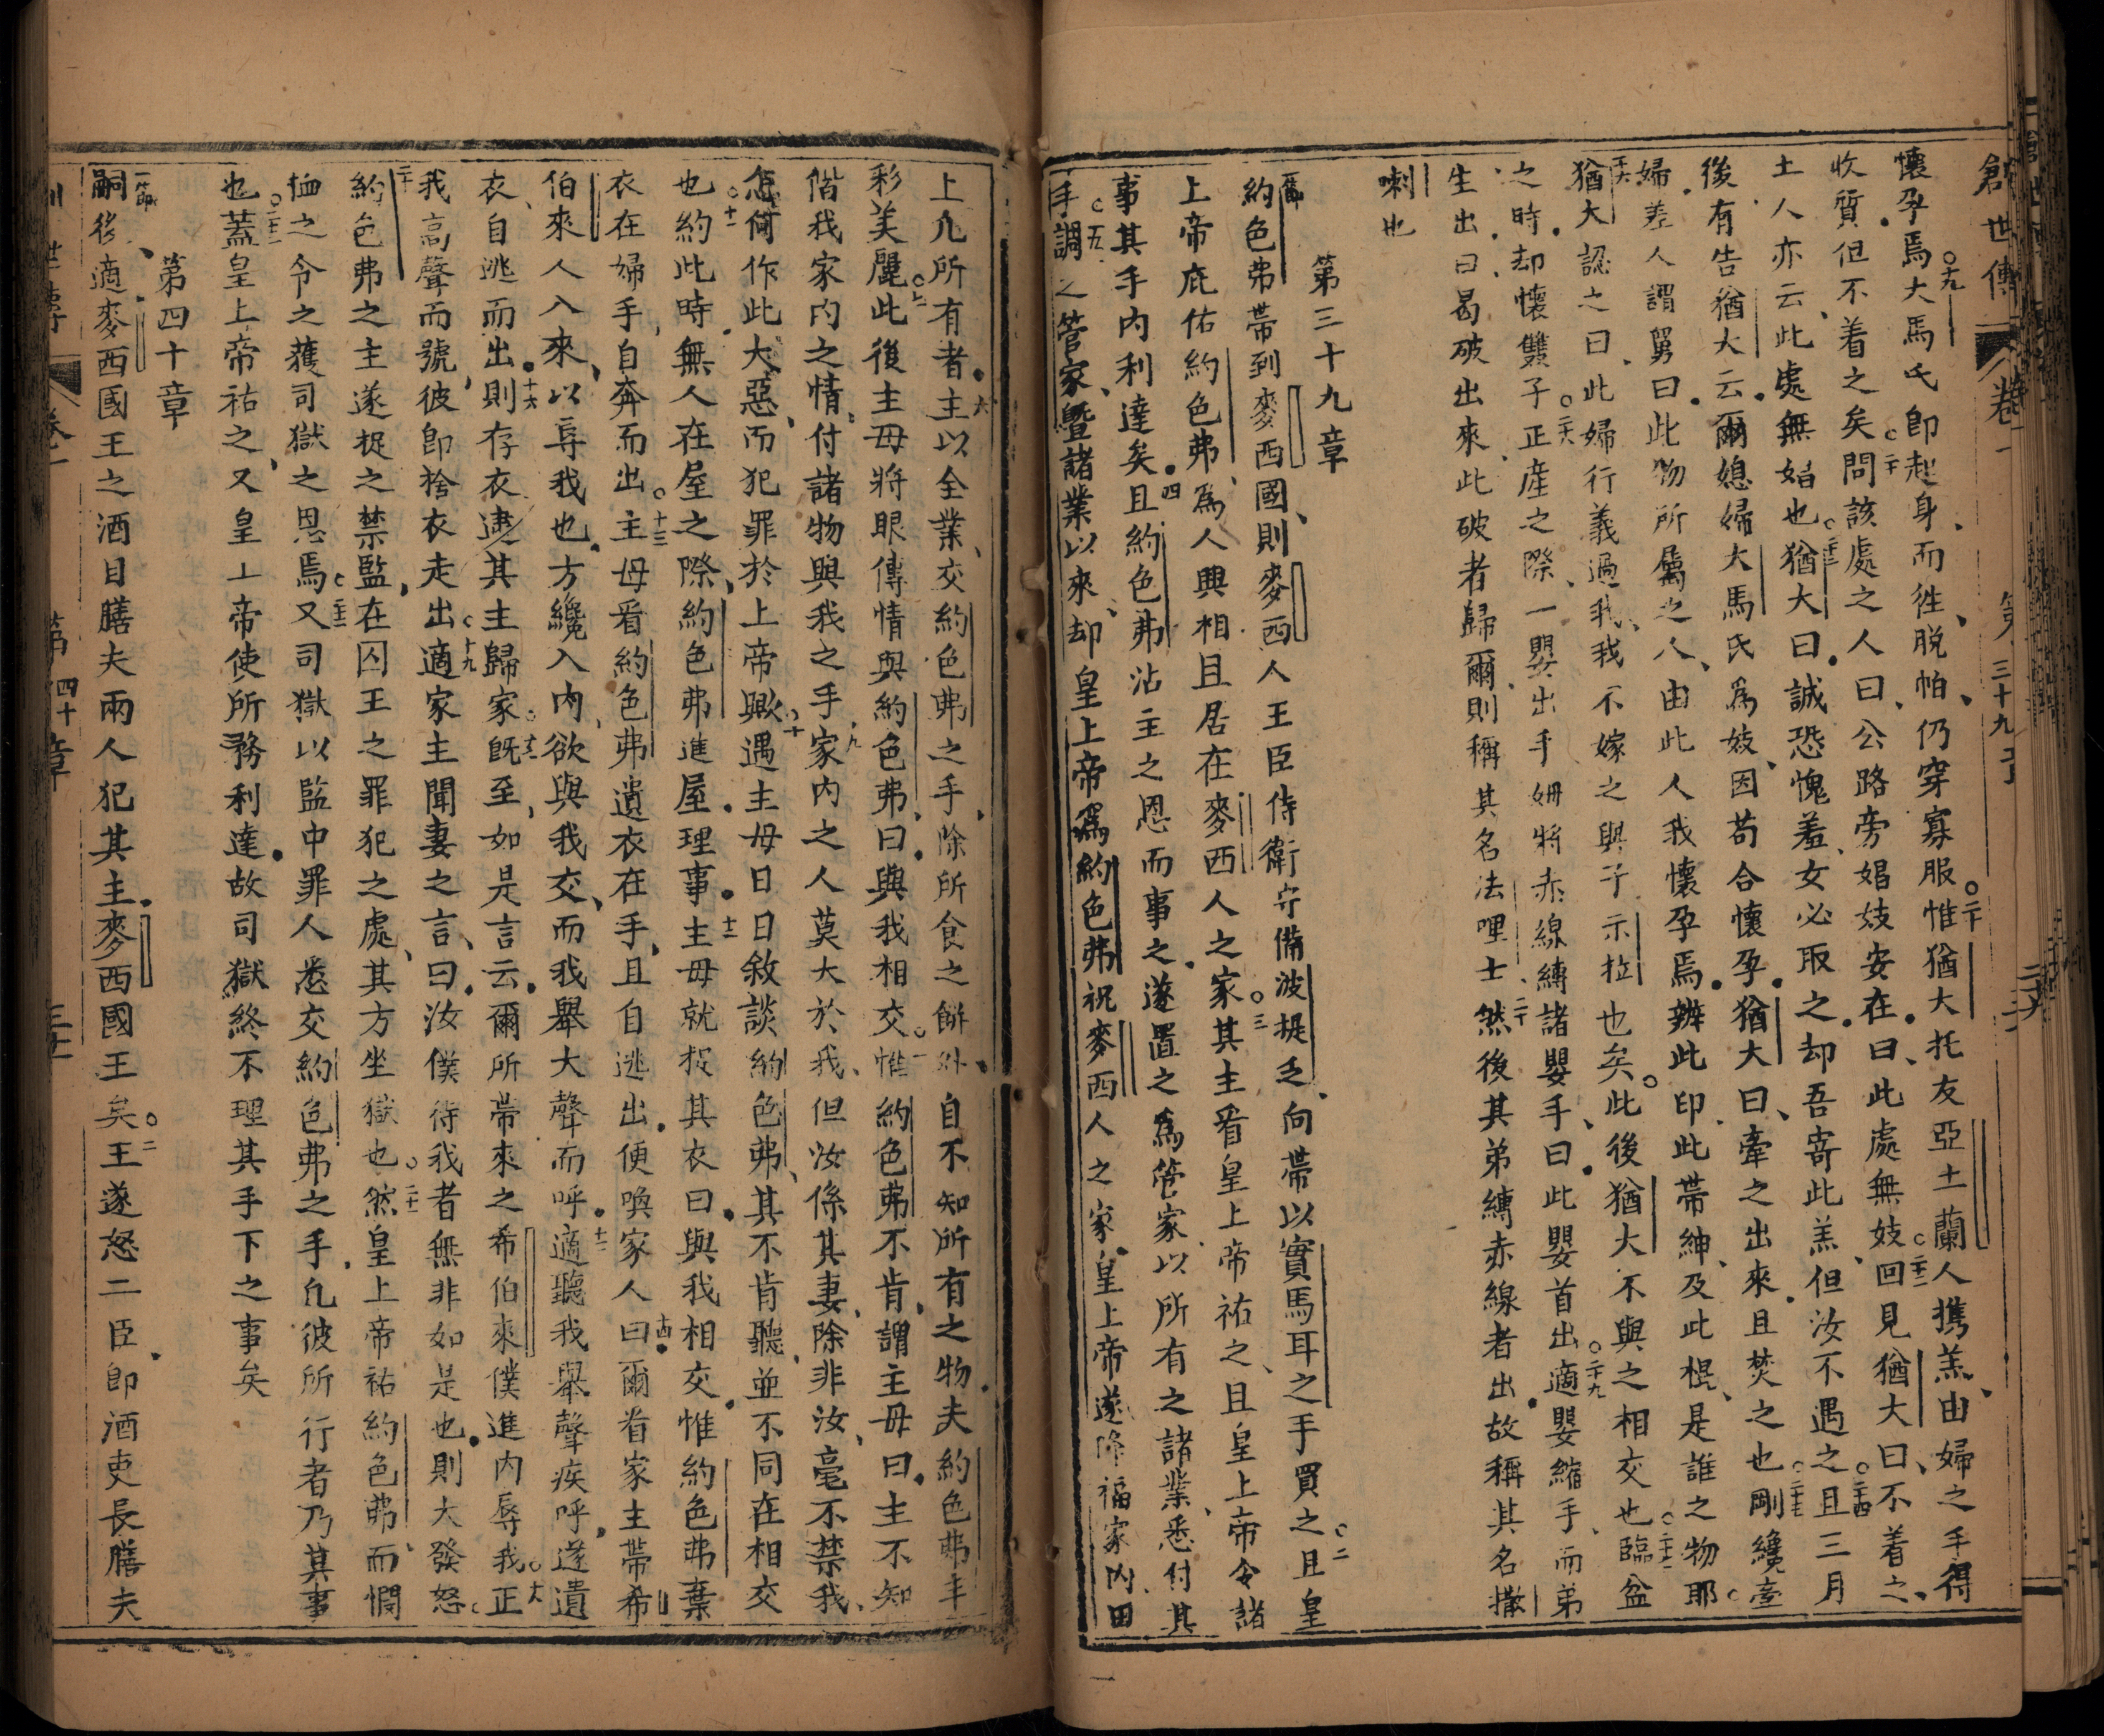 創世傳 卷一 第三十九章
懷孕焉大馬氏卽起身而徃脱帕仍穿寡服惟猶大托友亞土蘭人携羔由婦之手得
收質但不着之矣問該處之人曰公路旁娼妓安在曰此處無妓回見猶大曰不着之
土人亦云此處無娼也猶大曰誠恐愧羞女必取之却吾寄此羔但汝不遇之且三月
後有告猶大云爾媳婦大馬氏爲妓因苟合懷孕猶大曰牽之出來且焚之也剛纔
婦差人謂舅曰此物所屬之人由此人我懷孕焉辨此印此帶紳及此棍是誰之物耶
猶大認之曰此婦行義過我我不嫁之與子示拉也矣此後猶大不與之相交也臨盆
之時却懷雙子正產之際一嬰出手姆將赤線縛諸嬰手曰此嬰首出適嬰縮手而弟
生出曰曷破出來此破者歸爾則稱其名法哩士然後其弟縛赤線者出故稱其名撒
喇也
第三十九章
約色弗帶到麥西國則麥西人王臣侍衛守備波提乏向帶以實馬耳之手買之且皇
上帝庇佑約色弗爲人興相且居在麥西人之家其主看皇上帝祐之且皇上帝令諸
事其手内利達矣且約色弗沾主之恩而事之遂置之爲管家以所有之諸業悉付其
手調之管家曁諸業以來却皇上帝爲約色弗祝麥西人之家皇上帝遂降福家内田
上凡所有者主以全業交約色弗之手除所食之餅外自不知所有之物夫約色弗丰
彩美麗此後主母將眼傳情與約色弗曰與我相交惟約色弗不肯謂主母曰主不知
偕我家内之情付諸物與我之手家内之人莫大於我但汝係其妻除非汝毫不禁我
怎何作此大惡而犯罪於上帝歟遇主母日日敘談約色弗其不肯聽並不同在相交
也約此時無人在屋之際約色弗進屋理事主母就捉其衣曰與我相交惟約色弗棄
衣在婦手自奔而出主母看約色弗遺衣在手且自逃出便喚家人曰爾看家主帶希
伯來人入來以辱我也方纔入内欲與我交而我舉大聲而呼適聽我舉聲疾呼遂遺
衣自逃而出則存衣逮其主歸家旣至如是言云爾所帶來之希伯來僕進内辱我正
我高聲而號彼卽捨衣走出適家主聞妻之言曰汝僕待我者無非如是也則大發怒
約色弗之主遂捉之禁監在囚王之罪犯之處其方坐獄也然皇上帝祐約色弗而憫
恤之令之獲司獄之恩焉又司獄以監中罪人悉交約色弗之手凡彼所行者乃其事
也蓋皇上帝祐之又皇上帝使所務利達故司獄終不理其手下之事矣
第四十章
嗣後適麥西國王之酒目膳夫兩人犯其主麥西國王矣王遂怒二臣卽酒吏長膳夫
世傳 卷一 第四十章